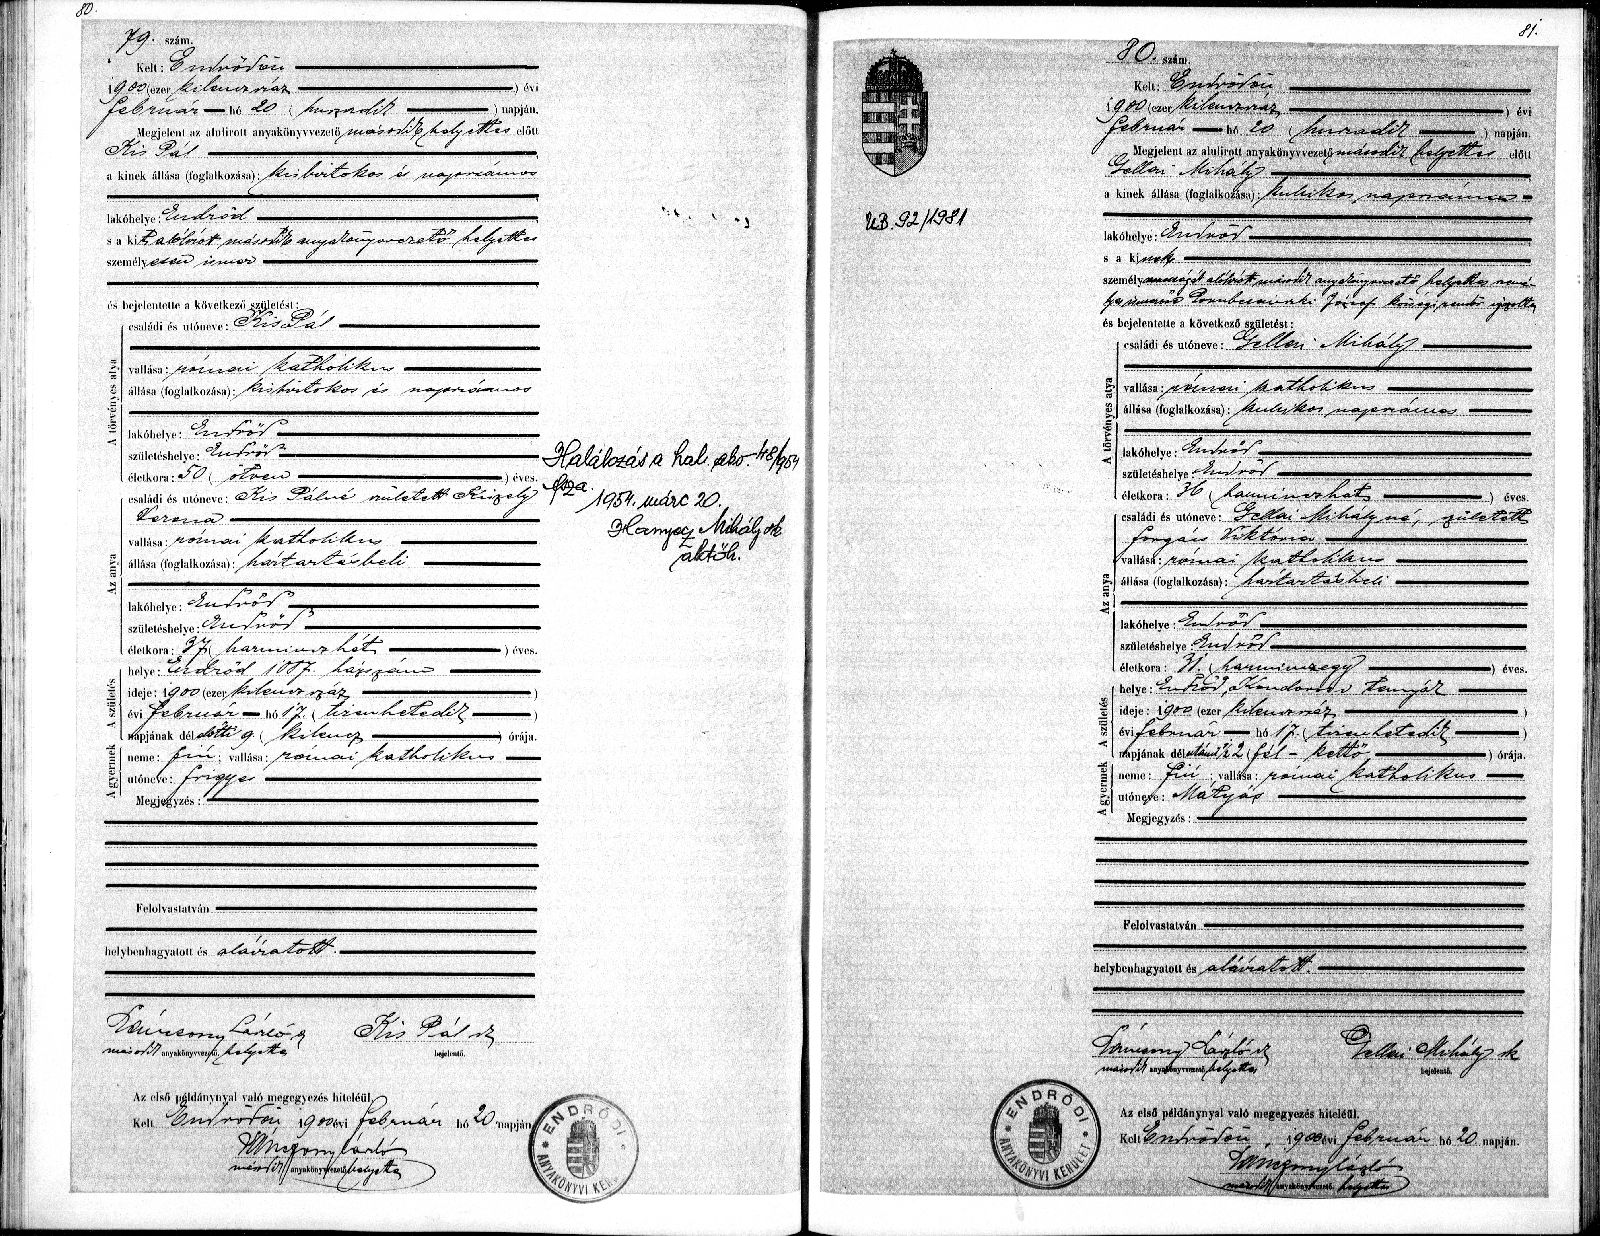 80.
79. szám.
Kelt: Endrődön
1900 (ezer kilenczszáz) évi
február hó 20 (huszadik) napján.
Megjelent az alulirott anyakönyvvezető második helyettes előtt
Kis Pál
a kinek állása (foglalkozása): kisbirtokos és napszámos
lakóhelye: Endrőd
s a kit alólirott második anyakönyvvezető helyettes
személyesen ismer
és bejelentette a következő születést:
A törvényes atya
családi és utóneve: Kis Pál
vallása: római katholikus
állása (foglalkozása): kisbirtokos és napszámos
lakóhelye: Endrőd
születéshelye: Endrőd
életkora: 50 (ötven) éves.
Az anya
családi és utóneve: Kis Pálné született
Terena
vallása: római katholikus
állása (foglalkozása): háztartásbeli
lakóhelye: Endrőd
születéshelye: Endrőd
életkora: 37 (harminczhét) éves.
A születés
helye: Endrőd 1087. házszám
ideje: 1900 (ezer kilenczszáz)
évi február hó 17. (tizenhetedik)
napjának délelőtti 9 (kilencz) órája.
A gyermek
neme: fiú; vallása: római katholikus
utóneve: Frigyes
Megjegyzés:
Felolvastatván
helybenhagyatott és aláiratott.
László Kis Pál sk
második anyakönyvvezető helyettes bejelentő.
Az első példánynyal való megegyezés hiteléül.
Kelt Endrődön 1900 évi február hó 20 napján
László
második anyakönyvvezető helyettes
ENDRŐDI ANYAKÖNYVI KERÜLET
Halálozás a hal. akv. 48/1954
1954. márc 20.
Mihály sk
81.
80. szám.
Kelt: Endrődön
1900 (ezer kilenczszáz) évi
február hó 20 (huszadik) napján.
Megjelent az alulirott anyakönyvvezető második helyettes előtt
Gellai Mihály
a kinek állása (foglalkozása): kubikos napszámos
lakóhelye: Endrőd
s a kinek
személyazonosságát alólirott második anyakönyvvezető helyettes
József községi rendőr igazolta
és bejelentette a következő születést:
A törvényes atya
családi és utóneve: Gellai Mihály
vallása: római katholikus
állása (foglalkozása): kubikos napszámos
lakóhelye: Endrőd
születéshelye Endrőd
életkora: 36 (harminczhat) éves.
Az anya
családi és utóneve: Gellai Mihályné, született
Forgács Viktória
vallása: római katholikus
állása (foglalkozása): háztartásbeli
lakóhelye: Endrőd
születéshelye Endrőd
életkora: 31. (harminczegy) éves.
A születés
helye: Endrőd, Kondorosi tanyák
ideje: 1900 (ezer kilenczszáz)
évi február hó 17. (tizenhetedik)
napjának délutáni ½ 2 (fél - kettő) órája.
A gyermek
neme: fiú; vallása: római katholikus
utóneve: Mátyás
Megjegyzés:
Felolvastatván
helybenhagyatott és aláiratott.
László sk Gellai Mihály sk
második anyakönyvvezető helyettes bejelentő.
Az első példánynyal való megegyezés hiteléül.
Kelt Endrődön, 1900 évi február hó 20 napján.
László
második anyakönyvvezető helyettes
ENDRŐDI ANYAKÖNYVI KERÜLET
UB. 92/1981